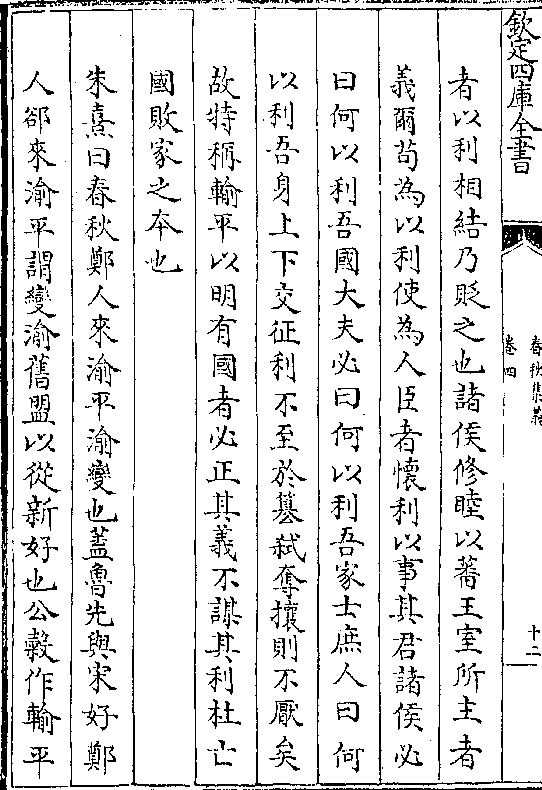 欽定四庫全書
春秋集義
卷四
十二
者以利相結乃貶之也諸侯修睦以蕃王室所主者
義爾苟為以利使為人臣者懷利以事其君諸侯必
曰何以利吾國大夫必曰何以利吾家士庶人曰何
以利吾身上下交征利不至於簒弑奪攘則不厭矣
故特稱輸平以明有國者必正其義不謀其利杜亡
國敗家之本也
朱熹曰春秋鄭人來渝平渝變也蓋魯先與宋好鄭
人郤來渝平謂變渝舊盟以從新好也公榖作輸平